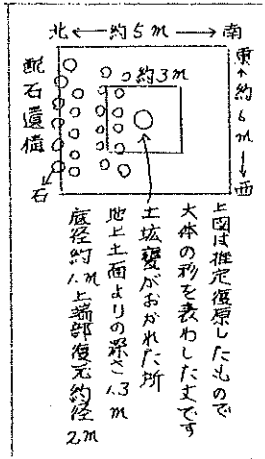 北←約5m→南
東←約6m→西
約3m
配石遺構
石
上図は推定復原したもので
大体の形を表わした丈です
土坑甕がおかれた所
地上土面よりの深さ1.3m
底径約1m上端部復元約径
2m